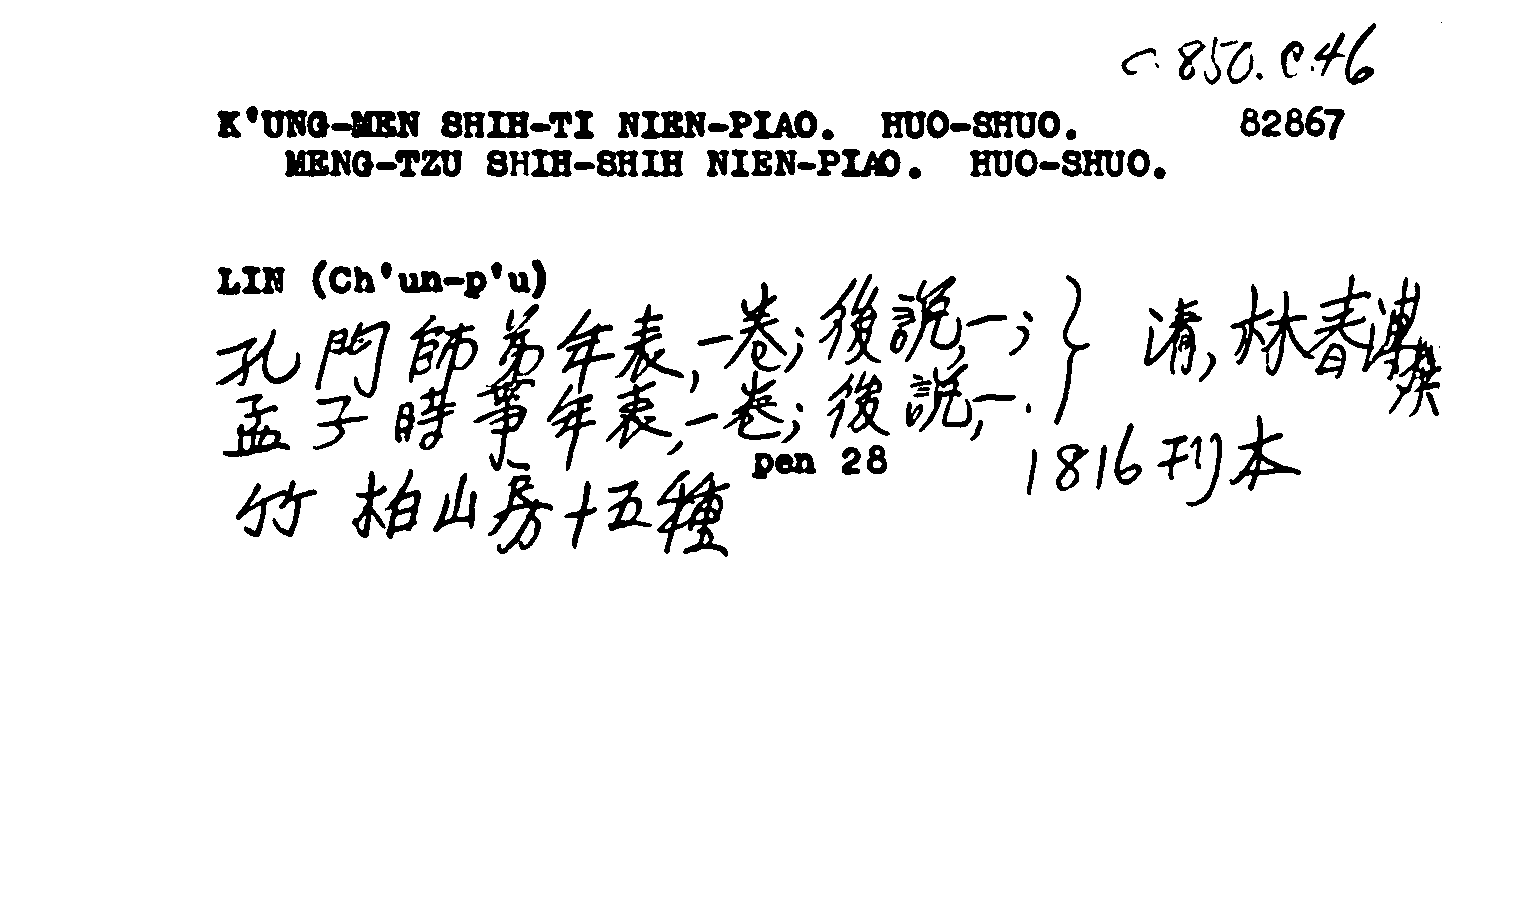 C. 850. e.46
K'UNG-MEN SHIH-TI NIEN-PIAO. HUO-SHUO. 82867
MENG-TZU SHIH-SHIH NIEN-PIAO. HUO-SHUO.
LIN (Ch'un-p'u)
孔門師弟年表,一卷;後說,一; } 清,林春溥撰
孟子時事年表,一卷;後說,一.
pen 28 1816刊本
竹柏山房十五種